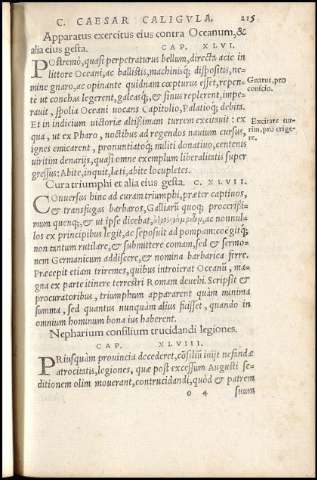 C. CAESAR CALIGVLA. 215
Apparatus exercitus eius contra Oceanum, &
alia eius gesta. CAP. XLVI.
POstremò, quasi perpetraturus bellum, directa acie in
littore Oceani, ac ballistis, machinisq; dispositis, ne-
mine gnaro, ac opinante quidnam cœpturus esset, repen-
te ut conchas legerent, galeasq;, & sinus replerent, impe-
rauit, spolia Oceani uocans Capitolio, Palatioq; debita.
Et in indicium uictoriæ altissimam turrem excitauit: ex
qua, ut ex Pharo, noctibus ad regendos nauium cursus,
ignes emicarent, pronuntiatoq; militi donatiuo, centenis
uiritim denarijs, quasi omne exemplum liberalitatis super
gressus: Abite, inquit, læti, abite locupletes.
Gnarus, pro
conscio.
Excitare tur-
rim, pro erige-
re.
Cura triumphi et alia eius gesta. C. XLVII.
COnuersus hinc ad curam triumphi, præter captiuos,
& transfugas barbaros, Galliarū quoq; procerissi-
mum quenq;, & ut ipse dicebat, ac nonnul-
los ex principibus legit, ac seposuit ad pompam: coegitq;
non tantum rutilare, & submittere comam, sed & sermo-
nem Germanicum addiscere, & nomina barbarica ferre.
Præcepit etiam triremes, quibus introierat Oceanū, ma-
gna ex parte itinere terrestri Romam deuehi. Scripsit &
procuratoribus, triumphum appararent quàm minima
summa, sed quantus nunquàm alius fuisset, quando in
omnium hominum bona ius haberent.
Nepharium consilium trucidandi legiones.
CAP. XLVIII.
PRiusquàm prouincia decederet, cōsiliū inijt nefandæ
atrocitatis, legiones, quæ post excessum Augusti se-
ditionem olim mouerant, contrucidandi, quòd & patrem
o 4 suum